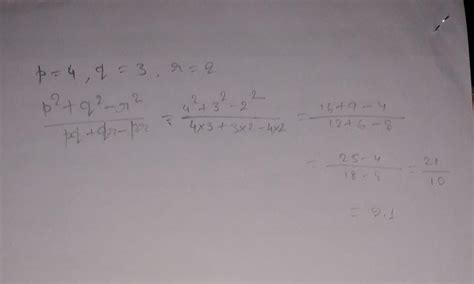 p = 4 , q = 3 , r = 2
p² + q² - r² / pq + qr - pr = 4² + 3² - 2² / 4×3 + 3×2 - 4×2 = 16 + 9 - 4 / 12 + 6 - 8
= 25 - 4 / 18 - 8 = 21 / 10
= 2.1